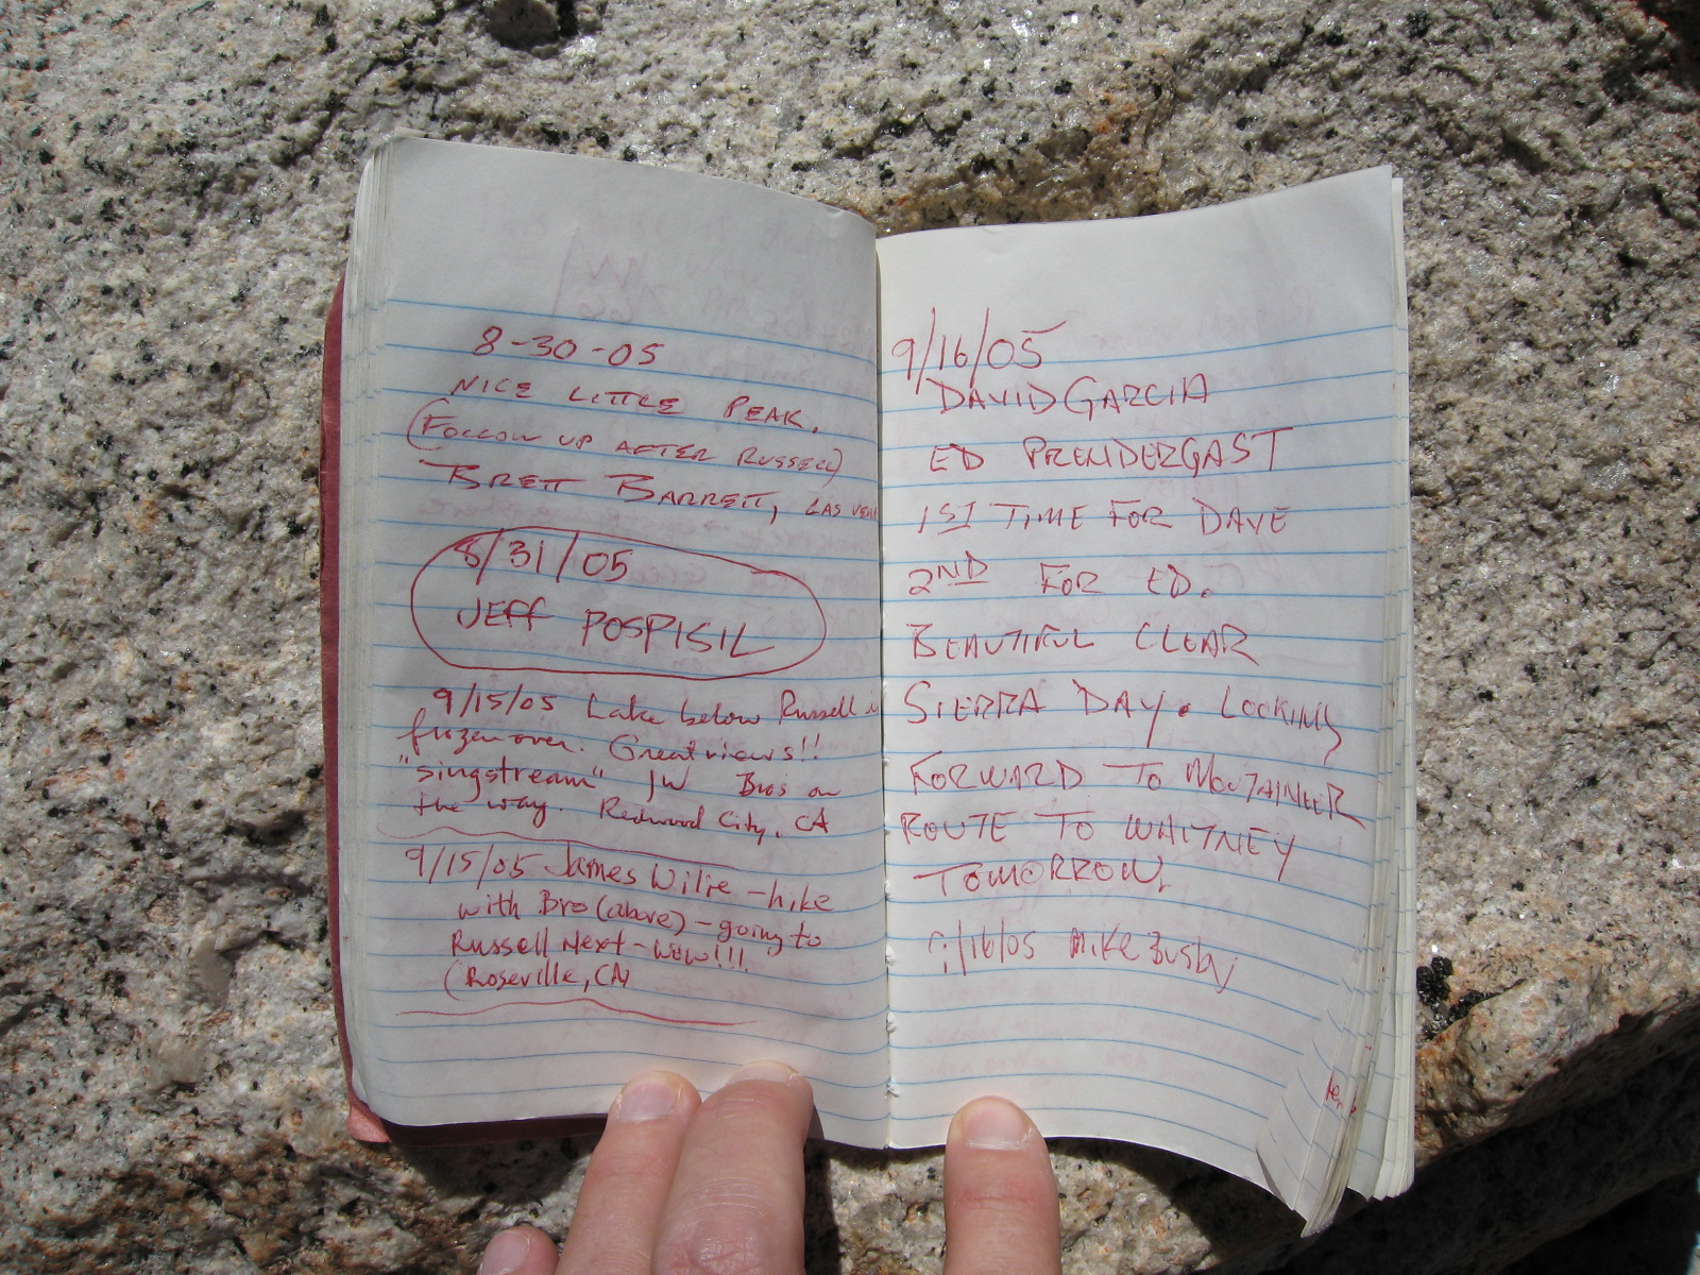 8-30-05
NICE LITTLE PEAK.
(FOLLOW UP AFTER RUSSELL)
BRETT BARRETT, LAS
8/31/05
JEFF POSPISIL
9/15/05 Lake below Russell is
frozen over. Great views!!
"singstream" JW Bros on
the way. Redwood City, CA
9/15/05 James Wilie - hike
with Bro (above) - going to
Russell Next - Wow!!!
(Roseville, CA)
9/16/05
DAVID GARCIA
ED PRENDERGAST
1ST TIME FOR DAVE
2ND FOR ED.
BEAUTIFUL CLEAR
SIERRA DAY. LOOKING
FORWARD TO MOUTAINEER
ROUTE TO WHITNEY
TOMORROW,
9/16/05 Mike Busby